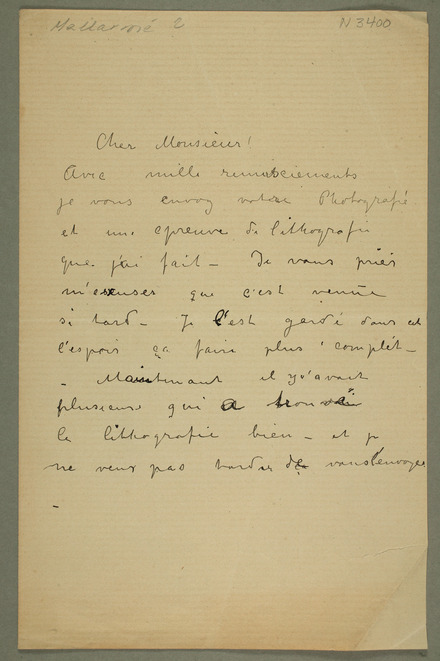 Mallarmé 2
N 3400
Cher Monsieur!
Avec mille remersciements
je vous envoy votre Photografie
et une epreuve de lithografie
que j'ai fait – Je vous pries
m'exuser que c'est venue
si tard – Je l'est gardé dans et
l'espoir ça faire plus complèt –
– Maintenant il y'avait
plusieurs qui a trouvé
la lithografie bien – et je
ne veux pas tarder de vous l'envoyer
–